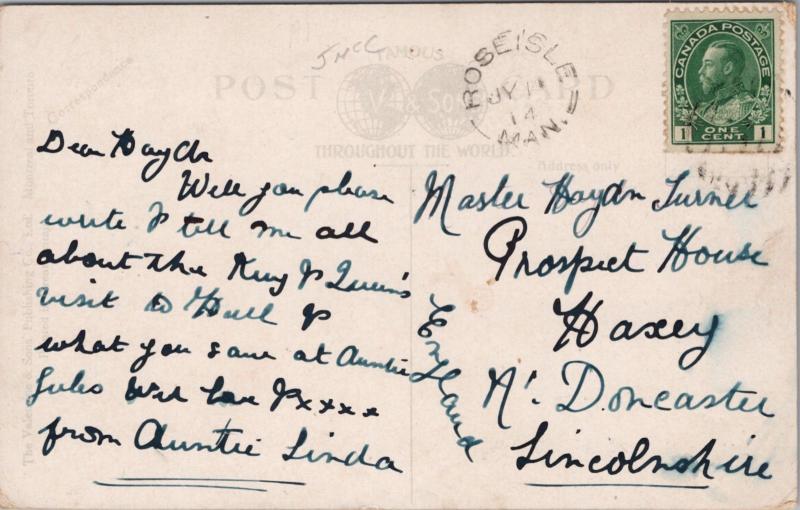 JMcC
FAMOUS
POST CARD
V. & Sons
THROUGHOUT THE WORLD
Correspondence
Address only
ROSEISLE
JY 11
14
MAN.
CANADA POSTAGE
1 ONE CENT 1
Dear Haydn
Will you please
write & tell me all
about the King & Queen's
visit to Hull &
what you saw at Auntie
With love & xxxx
from Auntie Linda
Master Haydn Turner
Prospect House
Haxey
Nr. Doncaster
Lincolnshire
England